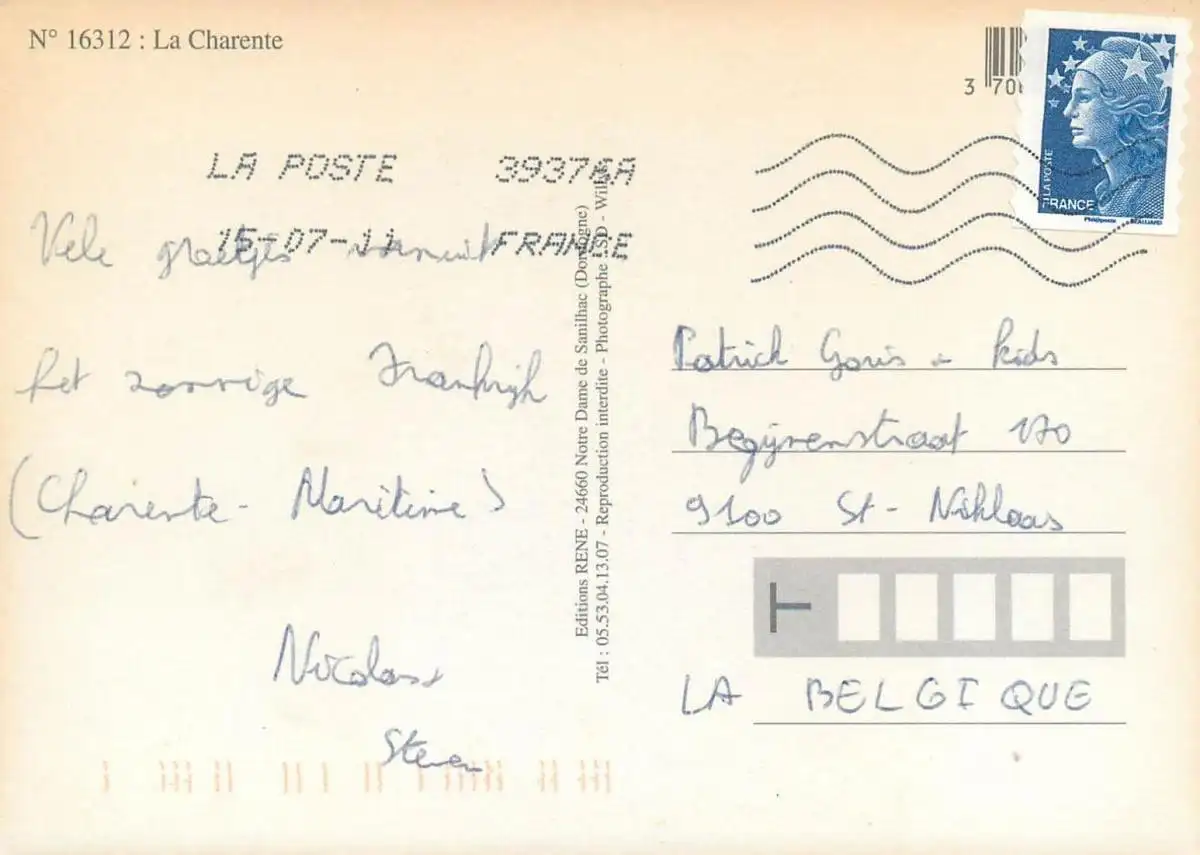 N° 16312 : La Charente
3 70
LA POSTE 39376A
15-07-11 FRANCE
LA POSTE
FRANCE
Vele groetjes vanuit
het zonnige Frankrijk
(Charente - Maritime)
Nicolas
Steven
Editions RENE - 24660 Notre Dame de Sanilhac (Dordogne)
Tél : 05.53.04.13.07 - Reproduction interdite - Photographe
Patrick Goris - kids
Begijnenstraat 170
9100 St - Niklaas
T
LA BELGIQUE